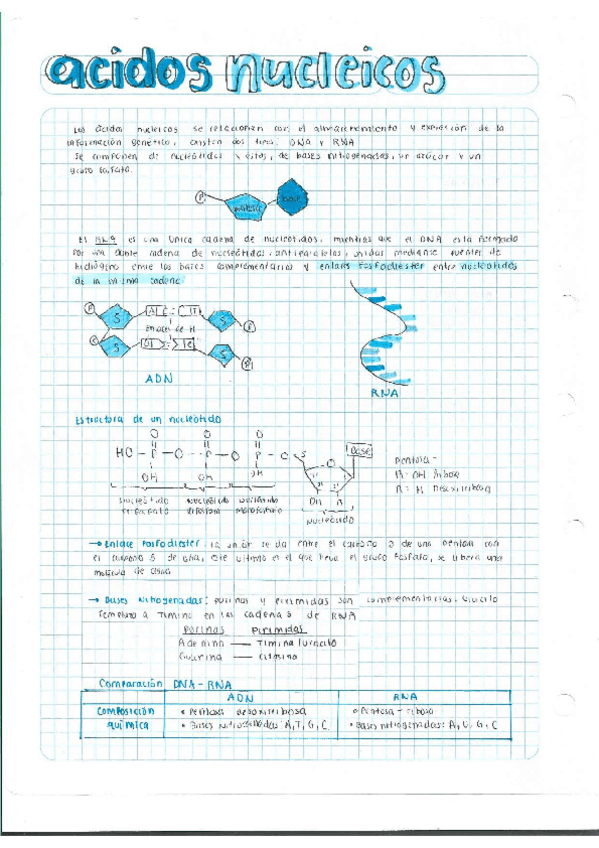 acidos nucleicos
Los ácidos nucleicos se relacionan con el almacenamiento y expresión de la
información genética, existen dos tipos, DNA y RNA
Se componen de nucleótidos y estos, de bases nitrogenadas, un azúcar y un
grupo fosfato.
P
El RNA es una única cadena de nucleótidos, mientras que el DNA está formado
por una doble cadena de nucleótidos, antiparalelas, unidas mediante puentes de
hidrógeno entre las bases complementarias y enlaces fosfodiester entre nucleótidos
de la misma cadena
P S A T S P
Enlaces de H
P S G C S P
ADN
RNA
Estructura de un nucleótido
O O O
HO - P - O - P - O - P - O - 5 O Base
OH OH OH
OH R
Pentosa -
R - OH ribosa
R - H Desoxirribosa
nucleótido nucleótido nucleótido
trifosfato difosfato monofosfato
Nucleósido
→ Enlace Fosfodiester: la unión se da entre el carbono 3 de una pentosa con
el carbono 5 de otra, este ultimo es el que lleva el grupo fosfato, se libera una
molécula de agua
→ Bases Nitrogenadas: purinas y pirimidas son complementarias. Uracilo
remplaza a timina en las cadenas de RNA
purinas pirimidas
Adenina — Timina/uracilo
Guanina — citosina
Comparación DNA - RNA
ADN RNA
Composición química
• Pentosa desoxirribosa
• Bases nitrogenadas: A, T, G, C
• Pentosa - ribosa
• Bases nitrogenadas: A, U, G, C